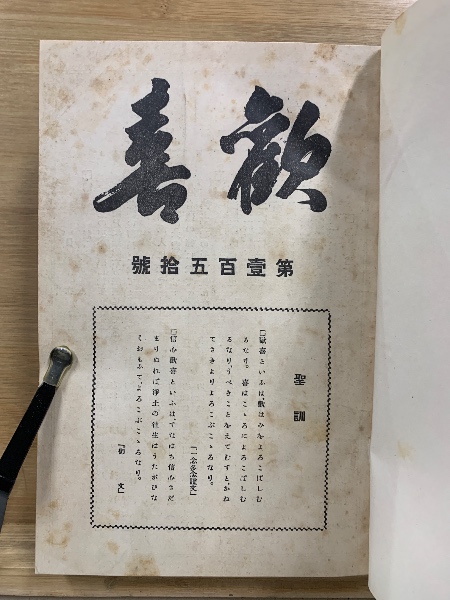 歡喜
第壹百五拾號
聖訓
□歡喜といふは、歡はみをよろこばしむ
るなり。喜はこゝろによろこばしむ
るなり、うべきことをえてむずと、かね
てさきよりよろこぶこゝろなり。
『一念多念證文』
□信心歡喜といふは、すなはち信心さだ
まりぬれば淨土の往生はうたがひな
くおもふて、よろこぶこゝろなり。